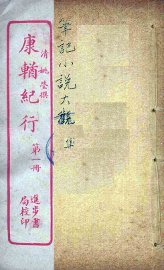 筆記小說大觀
清姚瑩撰
康輶紀行
第一冊
進步書
局校印